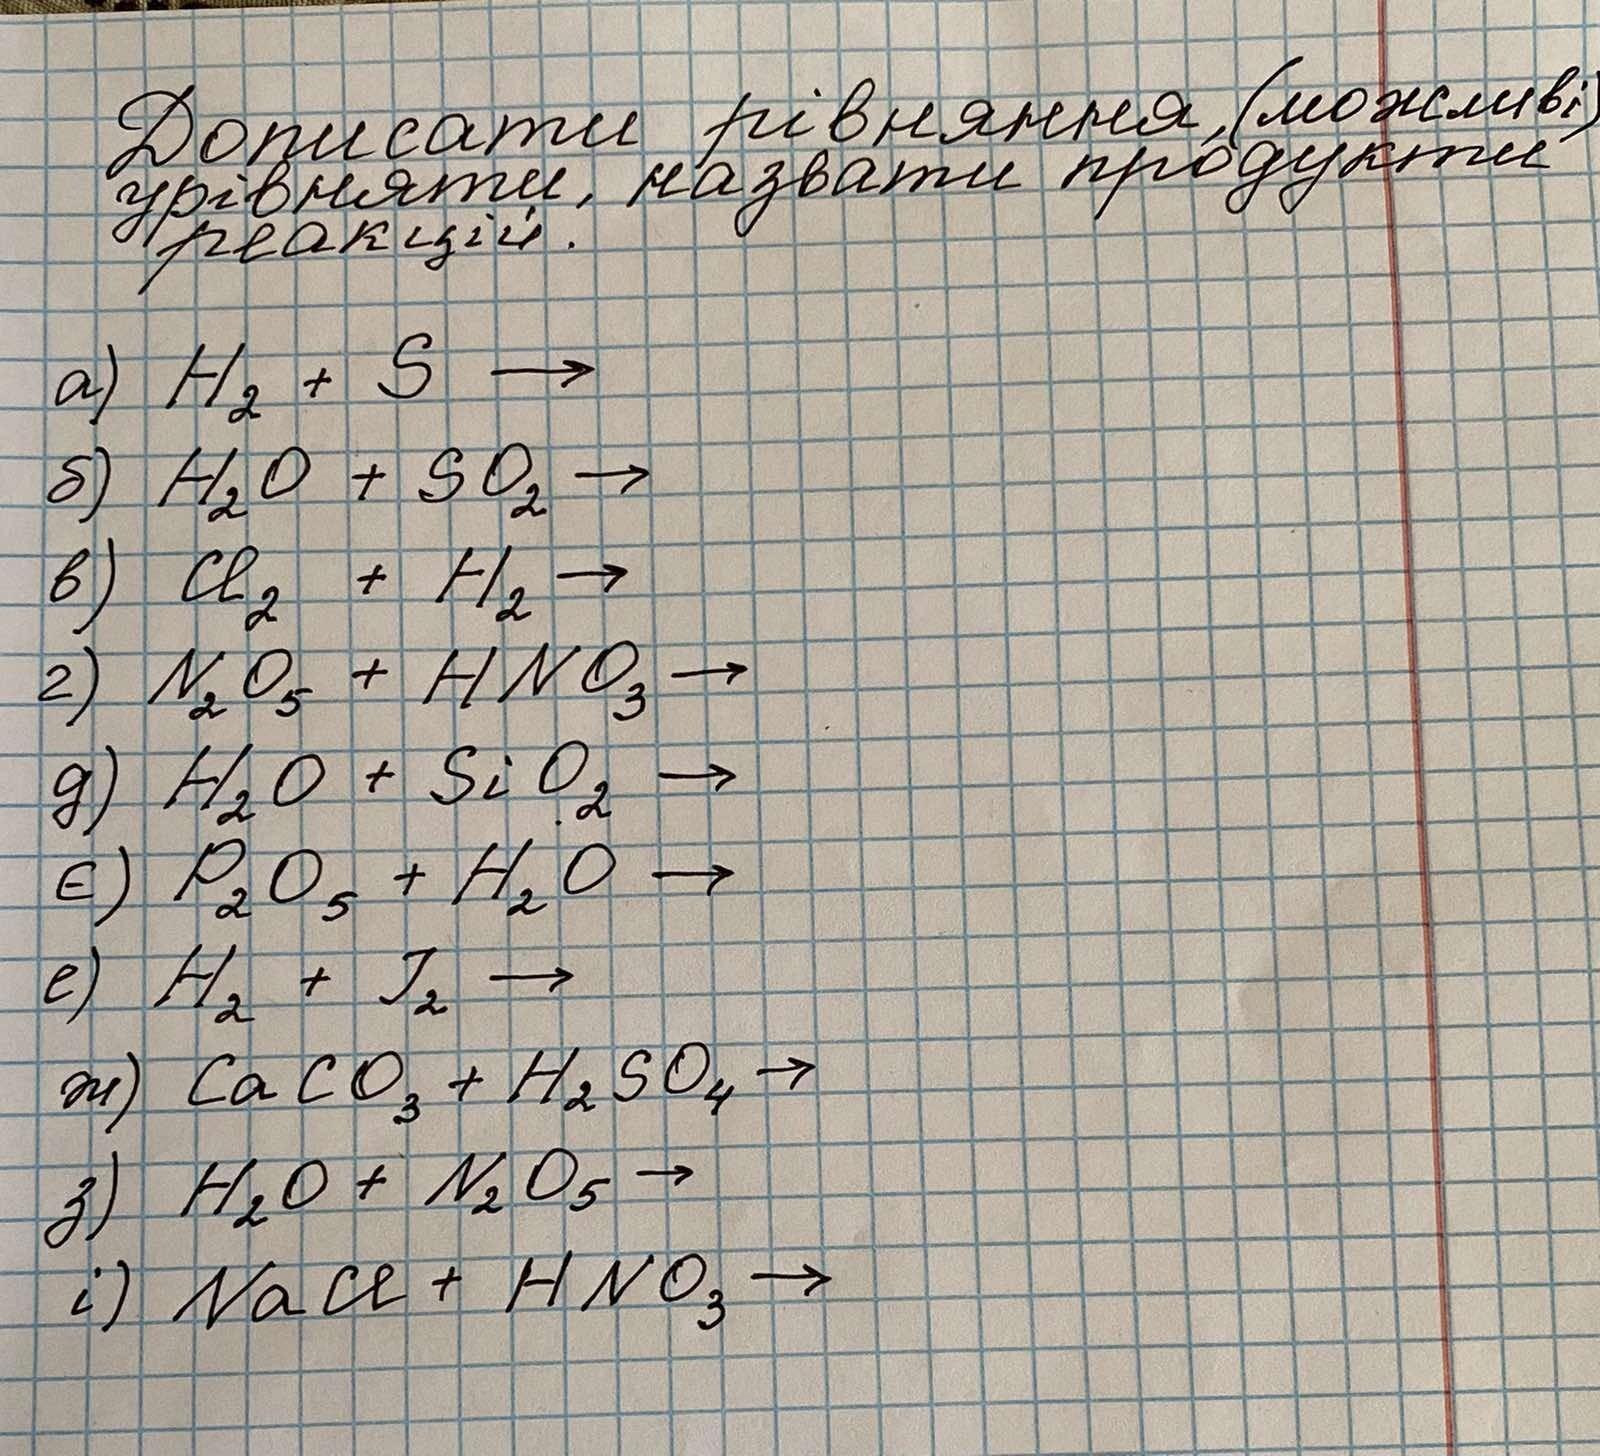 Дописати рівняння, (можливі)
урівняти, назвати продукти
реакцій.
а) H₂ + S →
б) H₂O + SO₂ →
в) Cl₂ + H₂ →
г) N₂O₅ + HNO₃ →
д) H₂O + SiO₂ →
є) P₂O₅ + H₂O →
е) H₂ + J₂ →
ж) CaCO₃ + H₂SO₄ →
з) H₂O + N₂O₅ →
і) NaCl + HNO₃ →